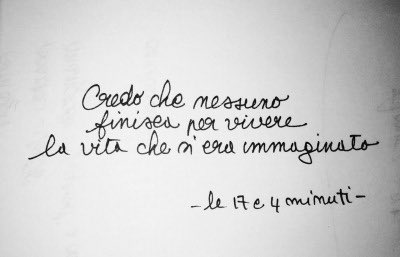 Credo che nessuno
finisca per vivere
la vita che s'era immaginato
- le 17 e 4 minuti -